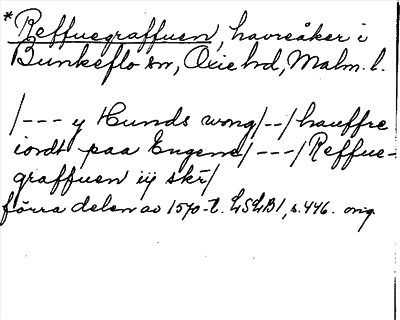 *Reffuegraffuen, havreåker i
Bunkeflo sn, Oxie hd, Malm. l.
/--- y Hunds wong/--/hauffre
iordt paa Engene/---/Reffue-
graffuen iij skr/
förra delen av 1570-t. LSLB1, s. 446. orig